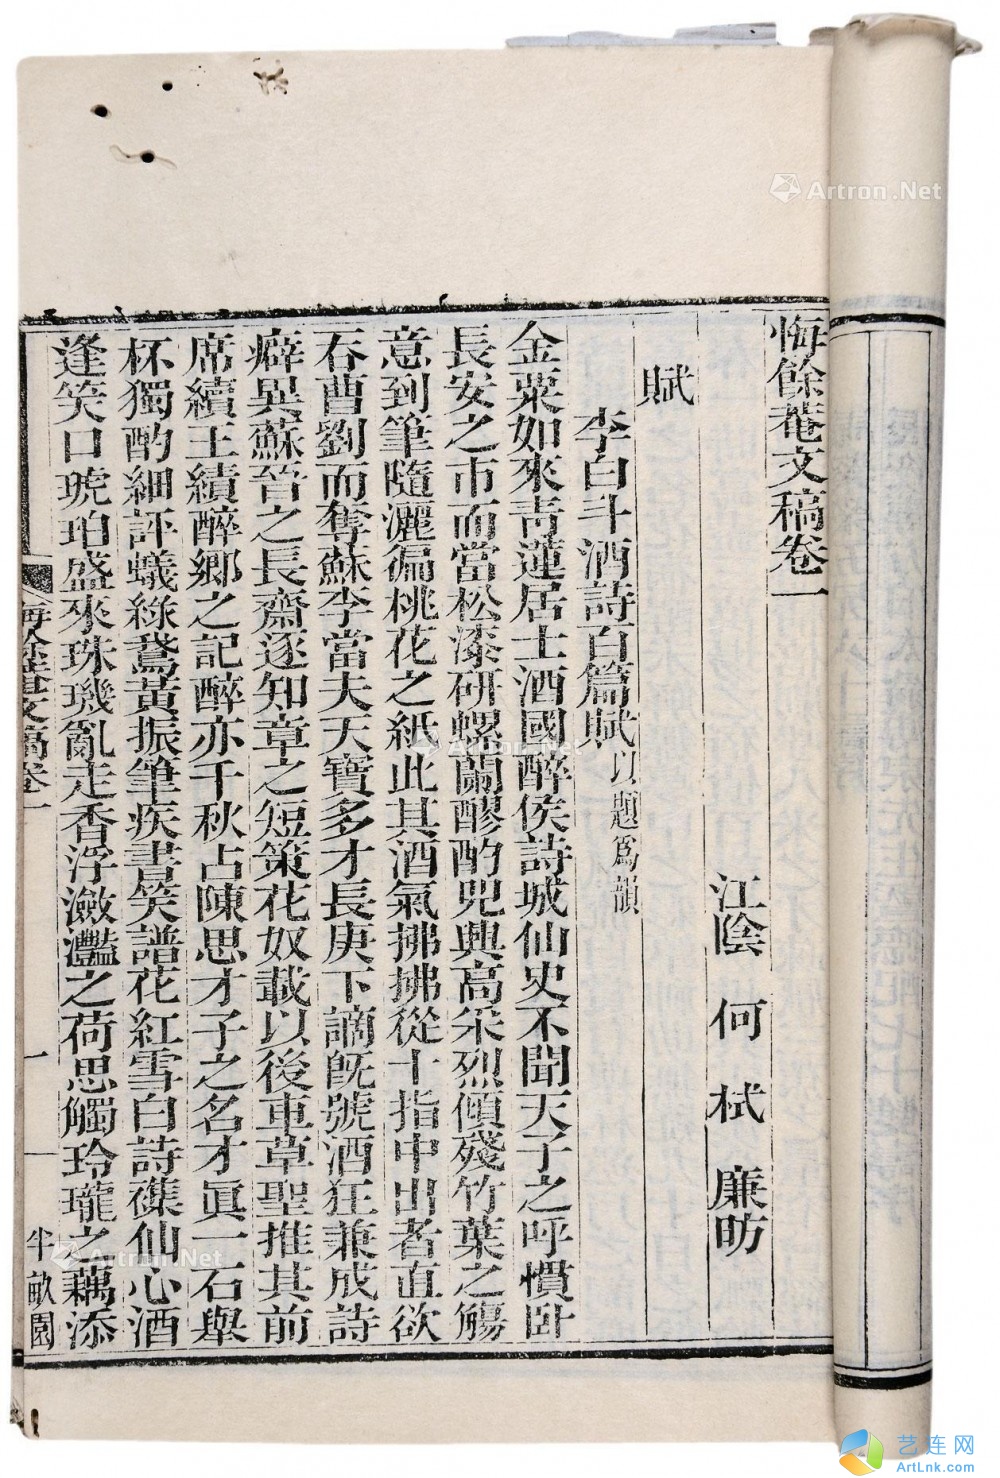 悔餘菴文稿卷一
江陰 何栻 廉昉
賦
李白斗酒詩百篇賦以題爲韻
金粟如來青蓮居士酒國醉侯詩城仙史不聞天子之呼慣卧
長安之市而當松漆研螺蘭醪酌兕興高采烈傾殘竹葉之觴
意到筆隨灑徧桃花之紙此其酒氣拂拂從十指中出者直欲
吞曹劉而奪蘇李當夫天寶多才長庚下謫旣號酒狂兼成詩
癖異蘇晉之長齋逐知章之短策花奴載以後車草聖推其前
席續王績醉鄉之記醉亦千秋占陳思才子之名才眞一石舉
杯獨酌細評蟻綠鵞黃振筆疾書笑譜花紅雪白詩襍仙心酒
逢笑口琥珀盛來珠璣亂走香浮瀲灩之荷思觸玲瓏之藕添
悔餘菴文稿卷一
一
半畝園
Artron.Net
Artron.Net
Artron.Net
艺连网
ArtLnk.com